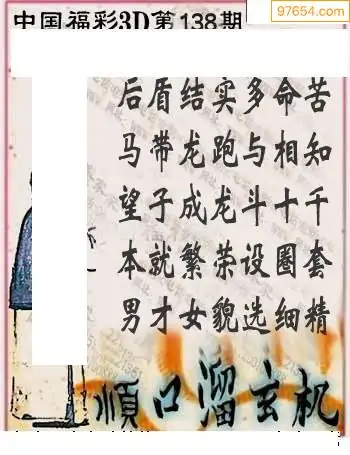 97654.com
中国福彩3D第138期
后盾结实多命苦
马带龙跑与相知
望子成龙斗十千
本就繁荣设圈套
男才女貌选细精
顺口溜玄机